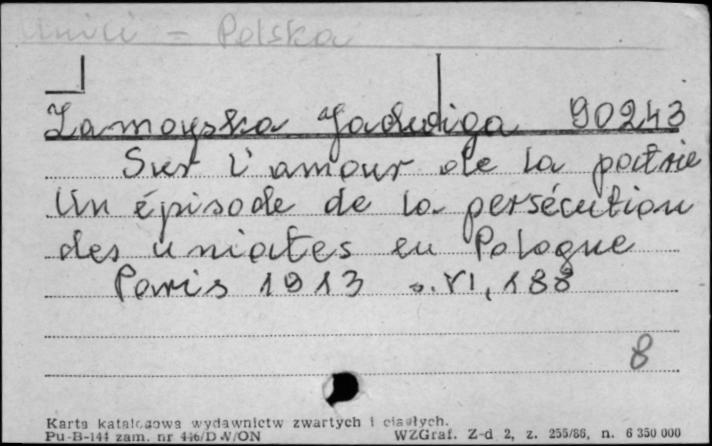 Unici = Polska
Zamoyska Jadwiga 90243
Sur l'amour de la patrie
Un épisode de la persécution
des uniates en Pologne
Paris 1913 s. VI, 188
8
Karta katalogowa wydawnictw zwartych i ciągłych.
Pu-B-144 zam. nr 446/D W/ON WZGraf. Z-d 2, z. 255/86, n. 6 350 000